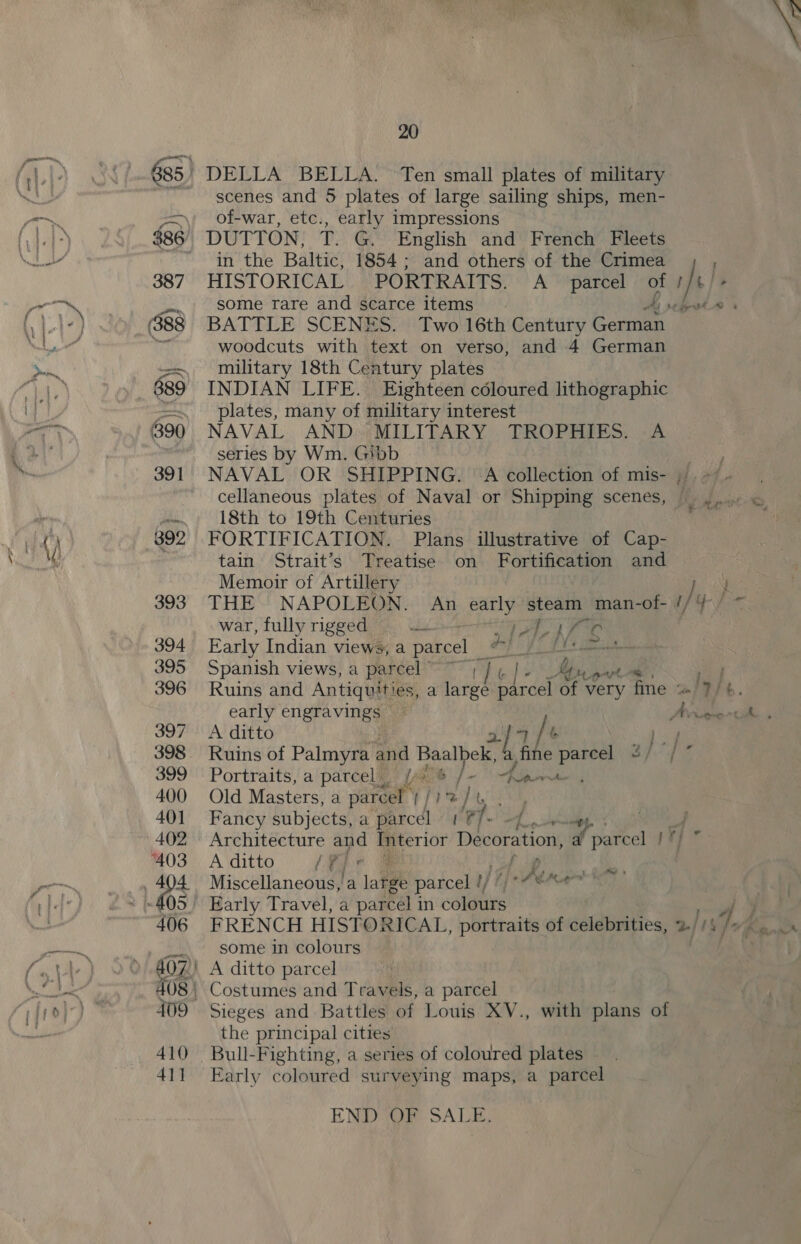 20
385 DELLA BELLA. Ten small plates of military
scenes and 5 plates of large sailing ships, men-
of-war, etc., early impressions
386 DUTTON, T. G. English and French Fleets
in the Baltic, 1854; and others of the Crimea
387 HISTORICAL PORTRAITS. A parcel of
some rare and scarce items
388 BATTLE SCENES. Two 16th Century German
woodcuts with text on verso, and 4 German
military 18th Century plates
389 INDIAN LIFE. Eighteen coloured lithographic
plates, many of military interest
390 NAVAL AND MILITARY TROPHIES. A
series by Wm. Gibb
391 NAVAL OR SHIPPING. A collection of mis-
cellaneous plates of Naval or Shipping scenes,
18th to 19th Centuries
392 FORTIFICATION. Plans illustrative of Cap-
tain Strait's Treatise on Fortification and
Memoir of Artillery
393 THE NAPOLEON. An early steam man-of-
war, fully rigged
394 Early Indian views, a parcel
395 Spanish views, a parcel
396 Ruins and Antiquities, a large parcel of very fine
early engravings
397 A ditto
398 Ruins of Palmyra and Baalbek, a fine parcel
399 Portraits, a parcel
400 Old Masters, a parcel
401 Fancy subjects, a parcel
402 Architecture and Interior Decoration, a parcel
403 A ditto
404 Miscellaneous, a large parcel
405 Early Travel, a parcel in colours
406 FRENCH HISTORICAL, portraits of celebrities,
some in colours
407 A ditto parcel
408 Costumes and Travels, a parcel
409 Sieges and Battles of Louis XV., with plans of
the principal cities
410 Bull-Fighting, a series of coloured plates
411 Early coloured surveying maps, a parcel
END OF SALE.